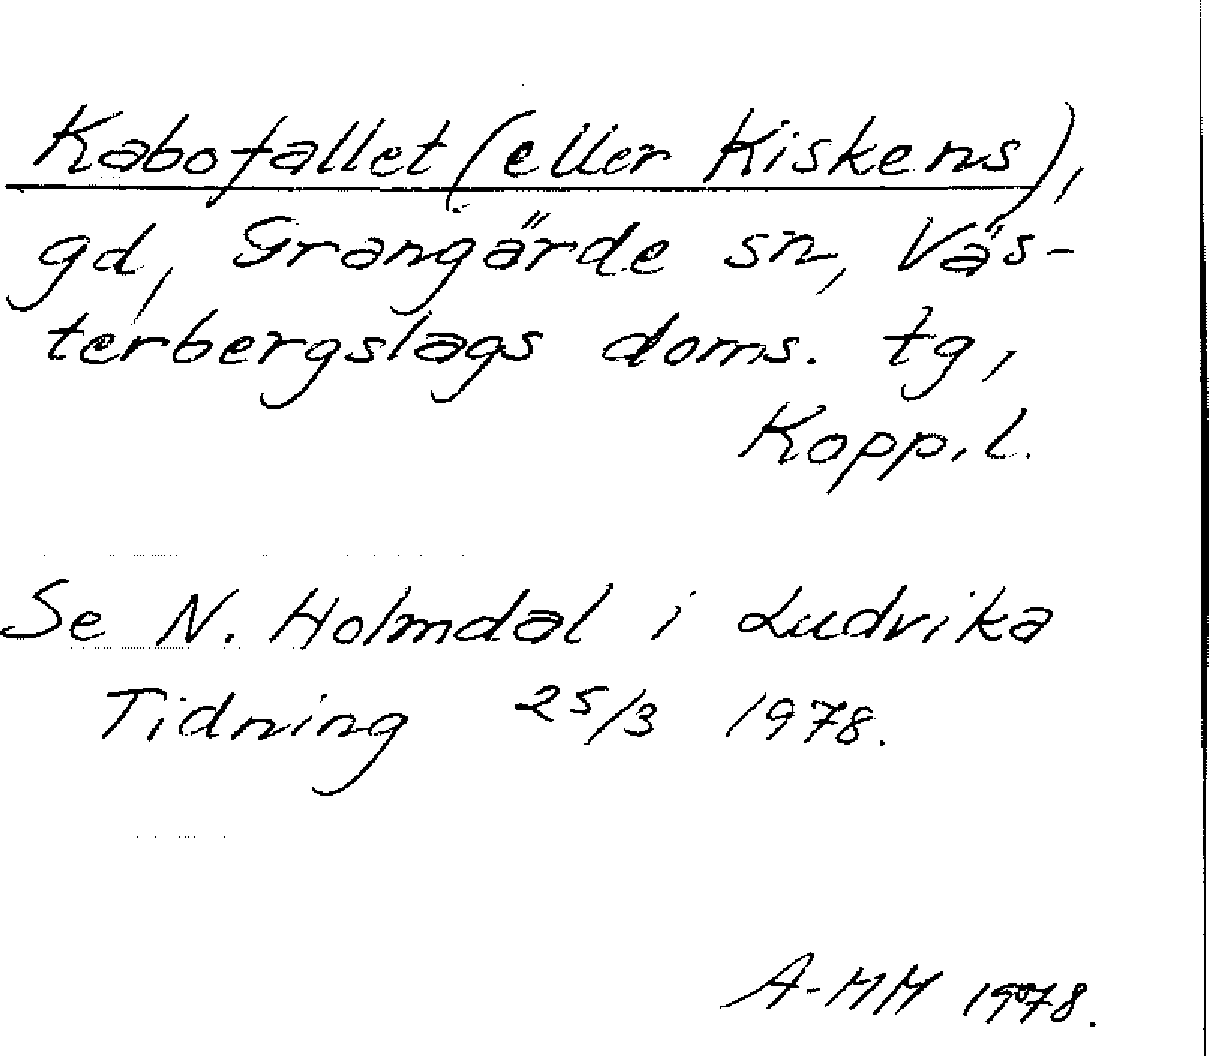 Kabofallet (eller Kiskens),
gd, Grangärde sn, Väs-
terbergslags doms. tg,
Kopp. l.
Se N. Holmdal i Ludvika
Tidning 25/3 1978.
A-MM 1978.